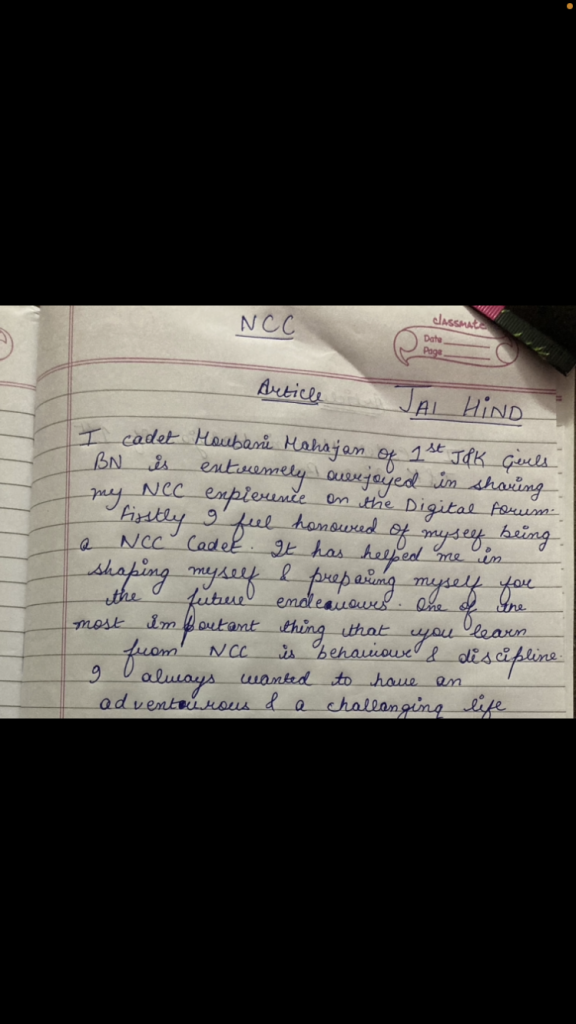 NCC
classmate
Date
Page
Article
JAI HIND
I cadet Moubani Mahajan of 1st J&K Girls
BN is extremely overjoyed in sharing
my NCC expierence on the Digital Forum.
Firstly I feel honoured of myself being
a NCC Cadet. It has helped me in
shaping myself & preparing myself for
the future endeavours. One of the
most important thing that you learn
from NCC is behaviour & discipline.
I always wanted to have an
adventourous & a challanging life